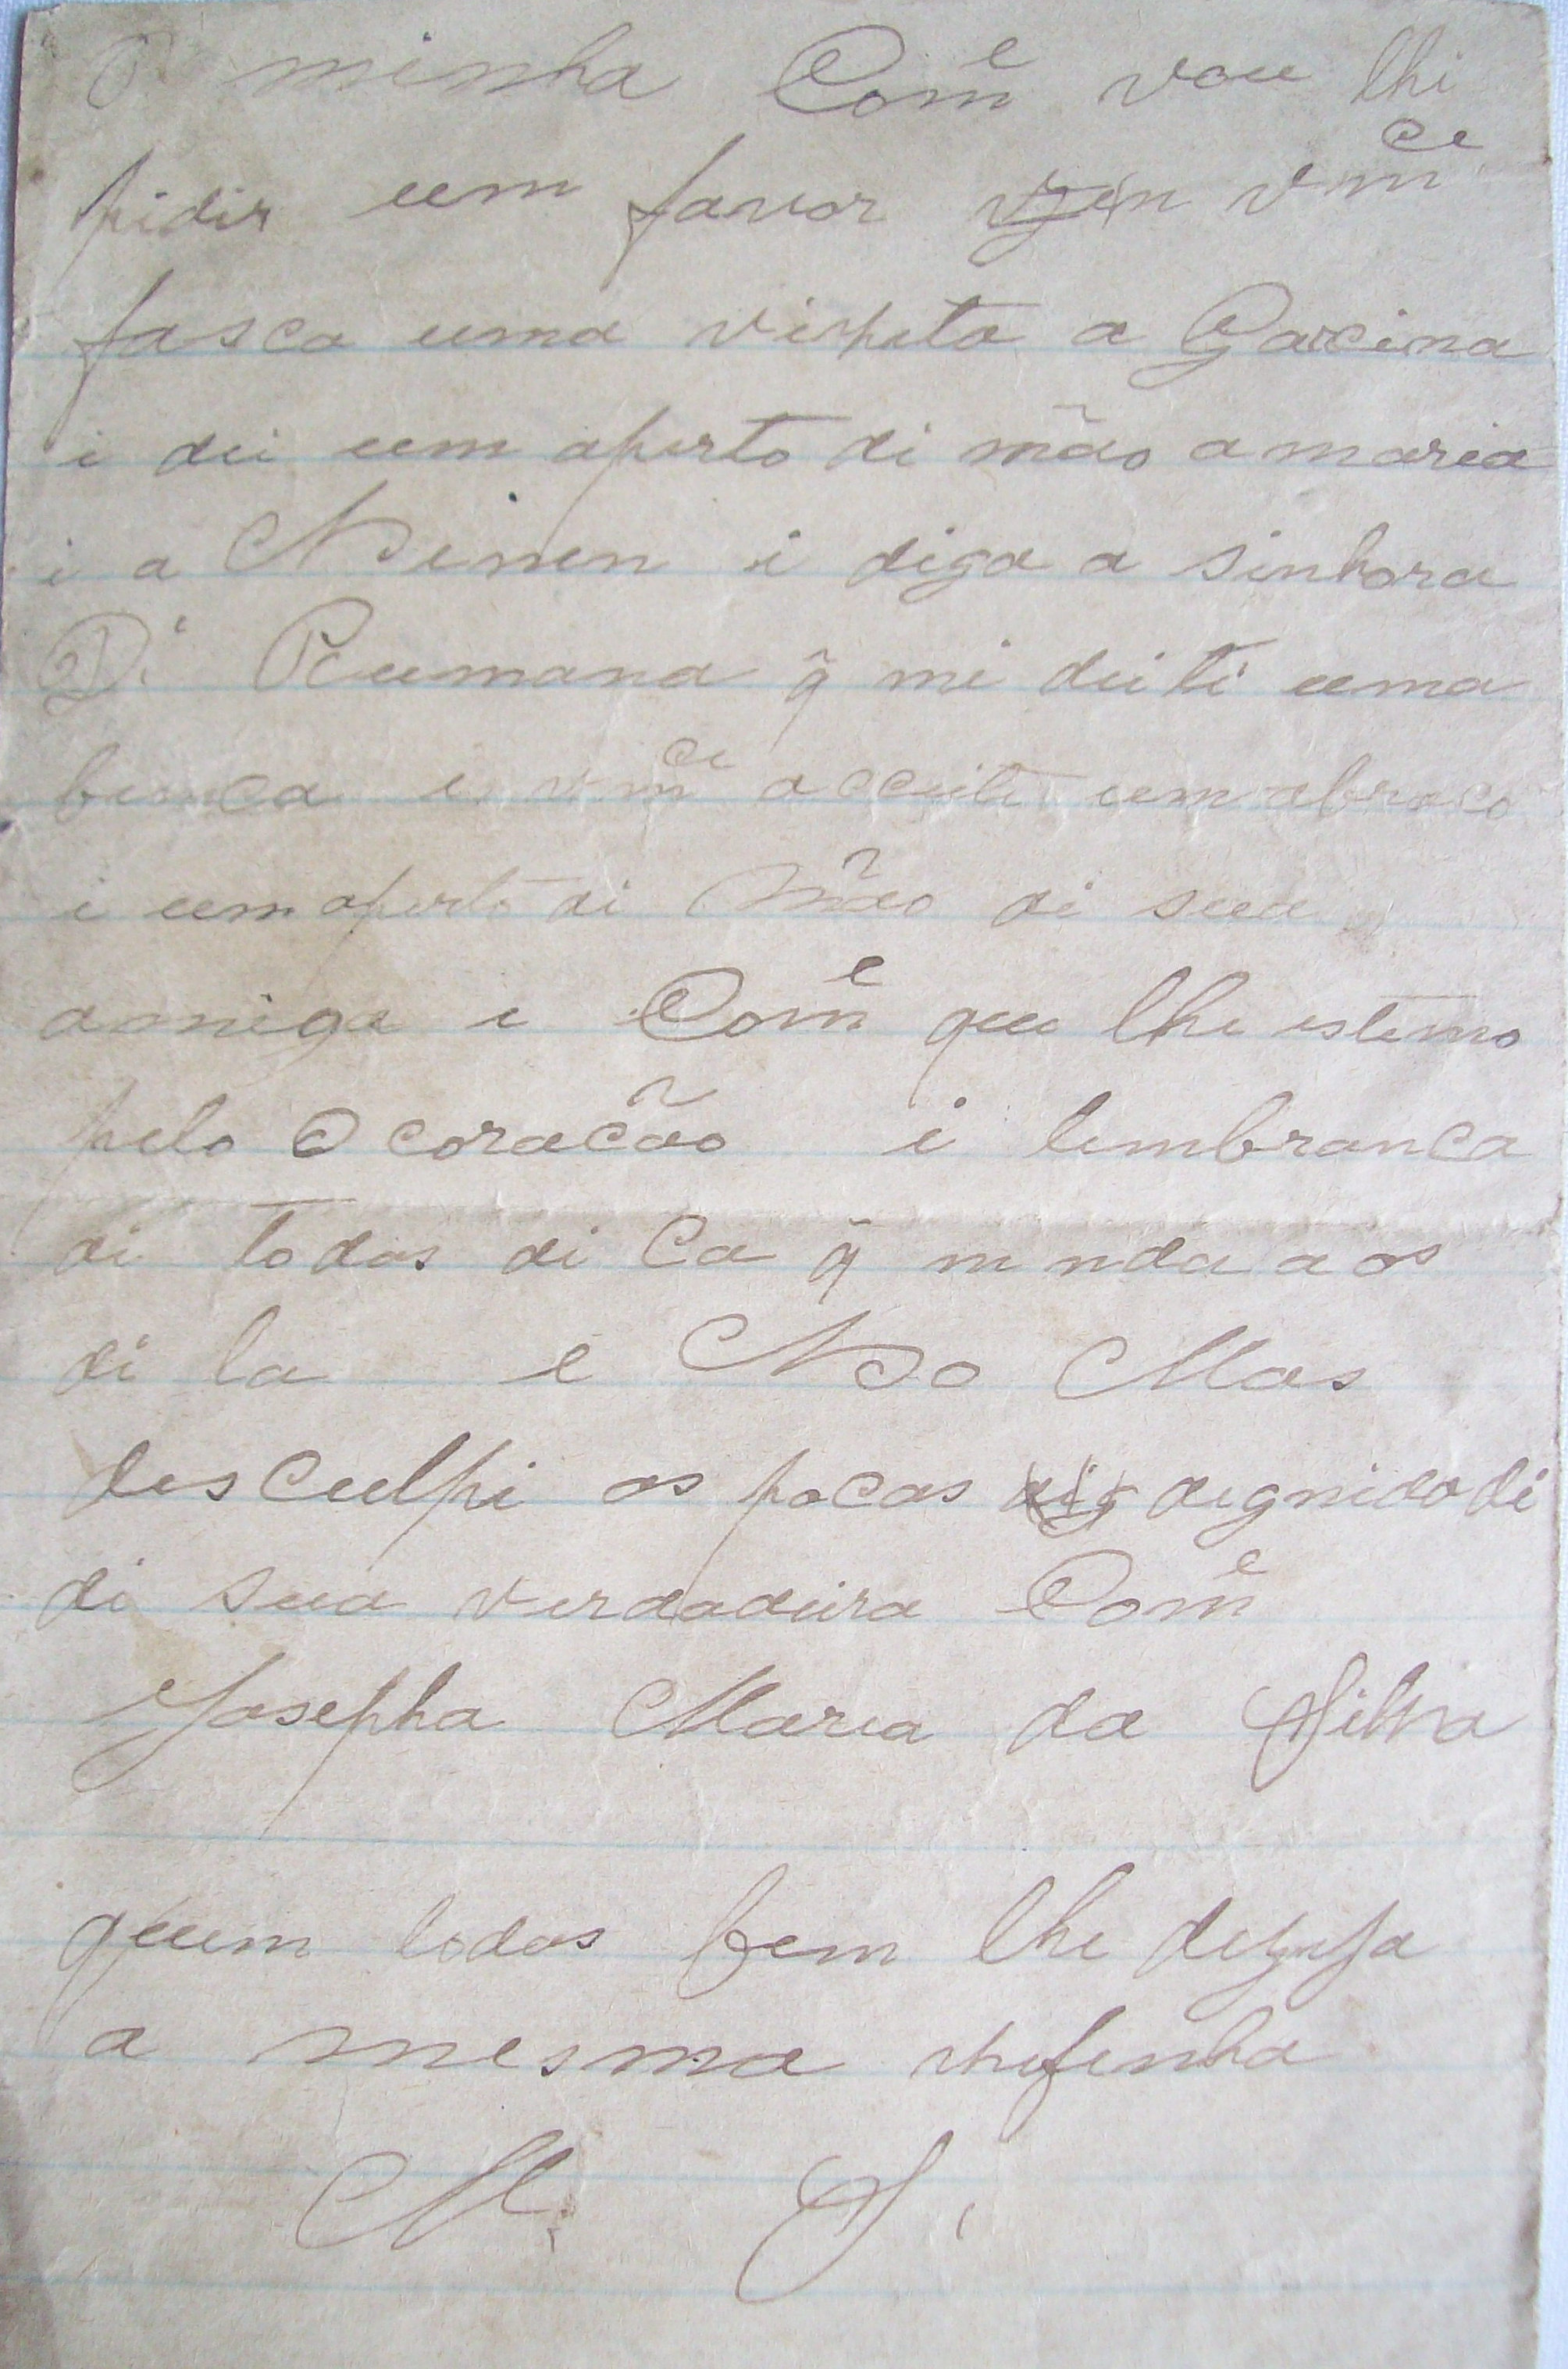 O minha Com^e vou lhi
pidir um favor vm^ce
fasca uma vispita a Garcina
i dei um aperto di mão a maria
i a Nenen i diga a sinhora
D.ª Rumana q̃ mi deiti uma
benca e vm^ce acceite um abraco
i um aperto di Mão di sua
amiga i Com^e que lhe estemo
pelo O coracão i lembranca
di todos di Ca q̃ mnda a os
di la e No Mas
desculpi as pocas dignidadi
di sua verdadeira Com^e
Josepha Maria da Silva
quem todos bem lhe dezeja
a mesma
M. S.